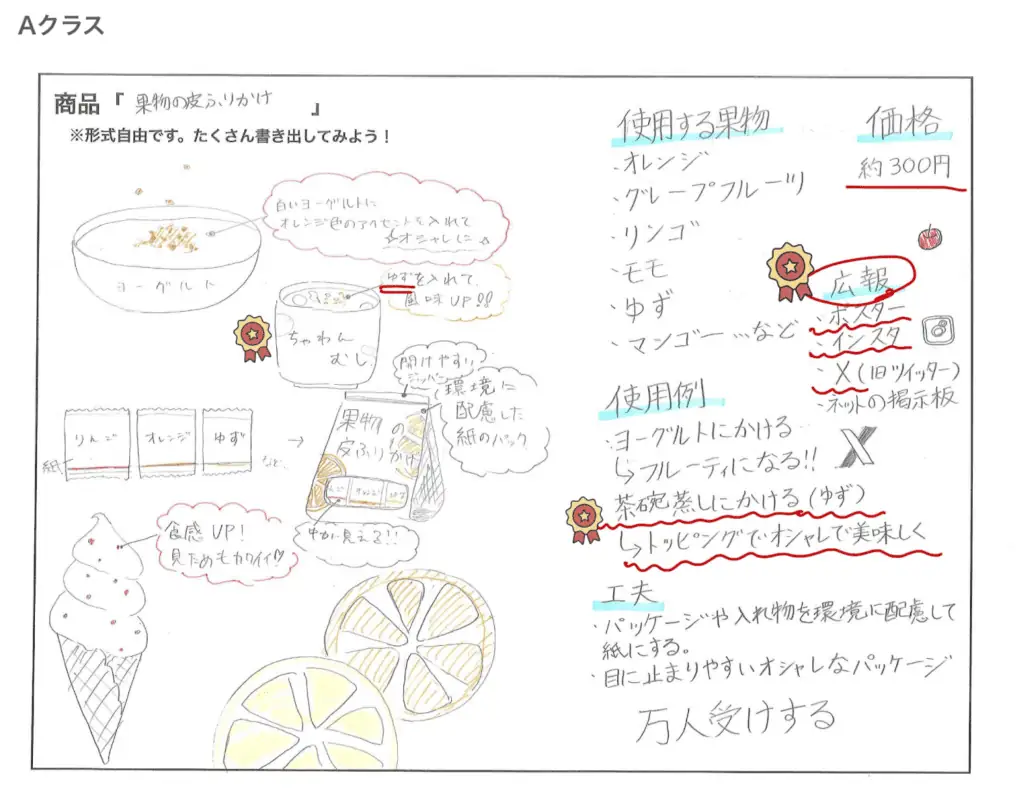 Aクラス
商品「果物の皮ふりかけ」
※形式自由です。たくさん書き出してみよう！
白いヨーグルトに
オレンジ色のアクセントを入れて
オシャレに
ヨーグルト
ゆずを入れて
風味UP!!
ちゃわん
むし
開けやすい
ジッパー
環境に
配慮した
紙のパック
りんご
オレンジ
ゆず
紙
など..
→
果物の
皮ふりかけ
中が見える!!
食感UP!
見ためもカワイイ♡
使用する果物
・オレンジ
・グレープフルーツ
・リンゴ
・モモ
・ゆず
・マンゴー…など
価格
約300円
広報
・ポスター
・インスタ
・X(旧ツイッター)
・ネットの掲示板
X
使用例
・ヨーグルトにかける
↳フルーティになる!!
・茶碗蒸しにかける(ゆず)
↳トッピングでオシャレで美味しく
工夫
・パッケージや入れ物を環境に配慮して
紙にする。
・目に止まりやすいオシャレなパッケージ
万人受けする